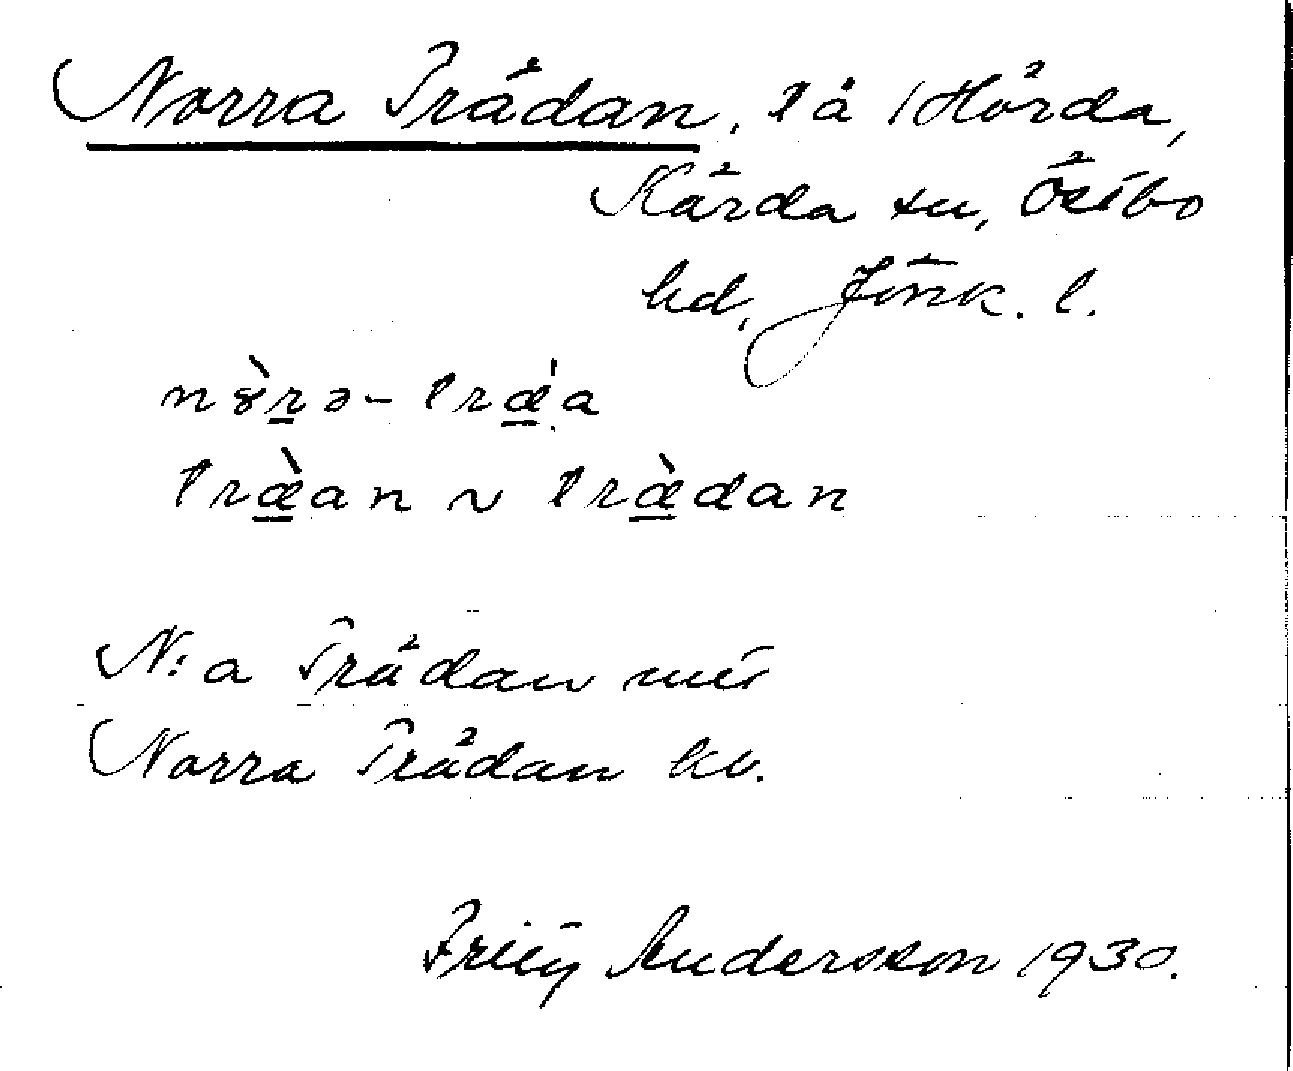 Norra Trådan, lä Hörda,
Kärda sn, Östbo
hd, Jönk. l.
nɤ̀rə-trǽa
træ̀an ~ træ̀dan
N:a Trådan mtr
Norra Trådan kv.
Fritz Andersson 1930.